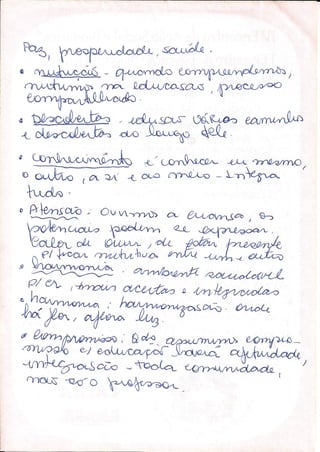 Paz, prosperidade, saúde.
• nutrição - quando compreendemos,
nutrimos na educasão, processo
compartilhado.
• Descobertas - educar vários caminhos
e descobertas ao longo dele.
• conhecimento é conhecer eu mesmo,
o outro, a si e ao meio - Integra
tudo.
• Atensão: Ouvimos a criança, os
potenciais podem se expressar.
Calor de ouvir, de estar presente
P/ ficar nutritiva entre um e outro
• harmonia - ambiente saudável
p/ cr, + mais acertas e integradas
• harmonia: harmonizasão. onde
há flor, aflora luz.
• Compromisso: Qdo assumimos compro-
misso c/ educação haverá afetividade,
integrasão - toda comunidade,
não só o professor.